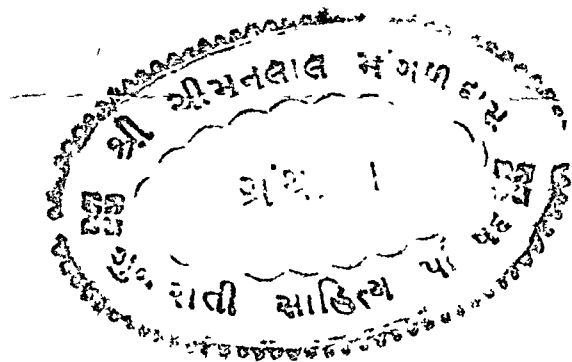 શ્રી ચીમનલાલ મંગળદાસ
ગ્રંથા
ગુજરાતી સાહિત્ય પરિષદ